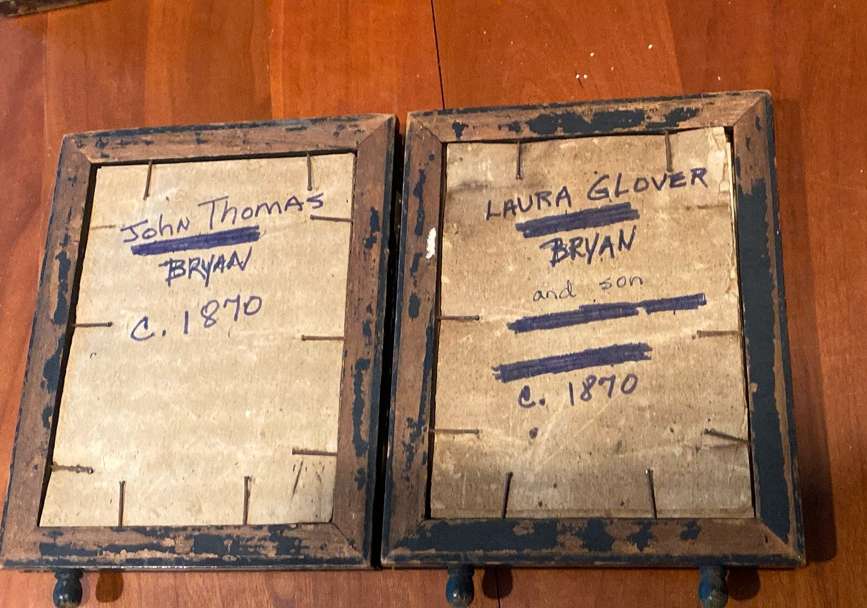 John Thomas
BRYAN
c. 1870
LAURA GLOVER
BRYAN
and son
c. 1870